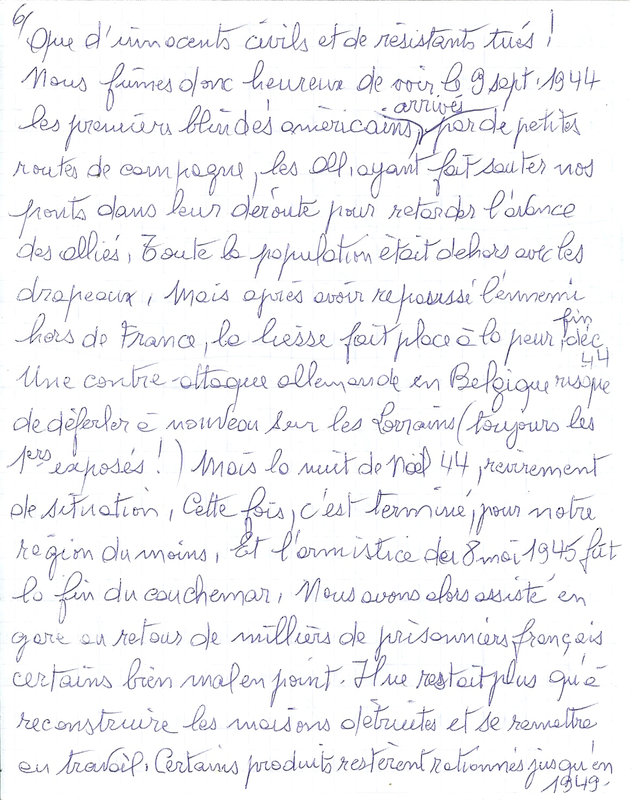 6/
Que d'innocents civils et de résistants tués !
Nous fûmes donc heureux de voir le 9 sept. 1944
arrivés
les premiers blindés américains, par de petites
routes de campagne, les All. ayant fait sauter nos
ponts dans leur déroute pour retarder l'avance
des alliés. Toute la population était dehors avec les
drapeaux. Mais après avoir repoussé l'ennemi
hors de France, la liesse fait place à la peur fin déc
44
Une contre-attaque allemande en Belgique risque
de déferler à nouveau sur les Lorrains (toujours les
1ers exposés !) Mais la nuit de Noël 44, revirement
de situation. Cette fois, c'est terminé, pour notre
région du moins. Et l'armistice du 8 mai 1945 fût
la fin du cauchemar. Nous avons alors assisté en
gare au retour de milliers de prisonniers français
certains bien mal en point. Il ne restait plus qu'à
reconstruire les maisons détruites et se remettre
au travail. Certains produits restèrent rationnés jusqu'en
1949.